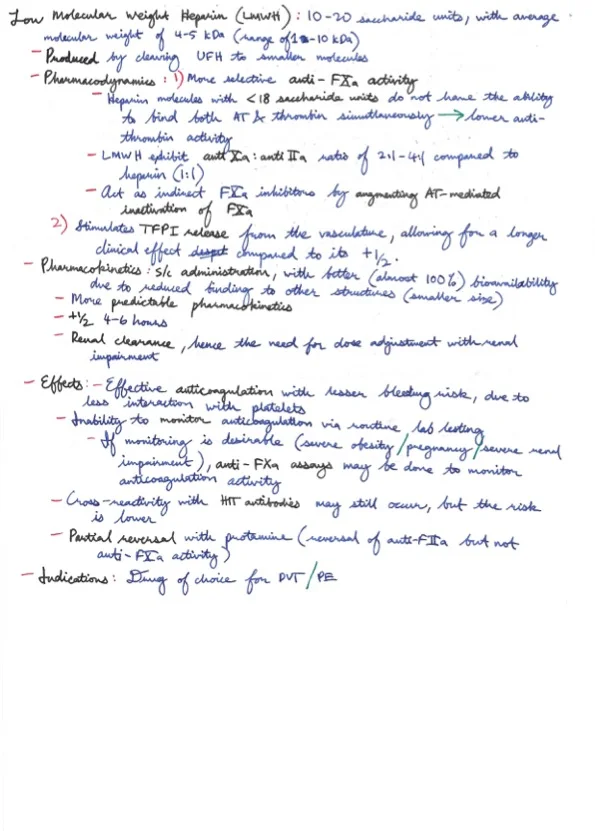 Low Molecular weight Heparin (LMWH) : 10-20 saccharide units, with average
molecular weight of 4-5 kDa (range of 1-10 kDa)
- Produced by cleaving UFH to smaller molecules
- Pharmacodynamics : 1) More selective anti-FXa activity
- Heparin molecules with <18 saccharide units do not have the ability
to bind both AT & thrombin simultaneously → lower anti-
thrombin activity
- LMWH exhibit anti Xa : anti IIa ratio of 2:1-4:1 compared to
heparin (1:1)
- Act as indirect FXa inhibitors by augmenting AT-mediated
inactivation of FXa
2) Stimulates TFPI release from the vasculature, allowing for a longer
clinical effect compared to its t1/2.
- Pharmacokinetics : s/c administration, with better (almost 100%) bioavailability
due to reduced binding to other structures (smaller size)
- More predictable pharmacokinetics
- t1/2 4-6 hours
- Renal clearance, hence the need for dose adjustment with renal
impairment
- Effects : - Effective anticoagulation with lesser bleeding risk, due to
less interaction with platelets
- Inability to monitor anticoagulation via routine lab testing
- If monitoring is desirable (severe obesity/pregnancy/severe renal
impairment), anti-FXa assays may be done to monitor
anticoagulation activity
- Cross-reactivity with HIT antibodies may still occur, but the risk
is lower
- Partial reversal with protamine (reversal of anti-FIIa but not
anti-FXa activity)
- Indications : Drug of choice for DVT/PE